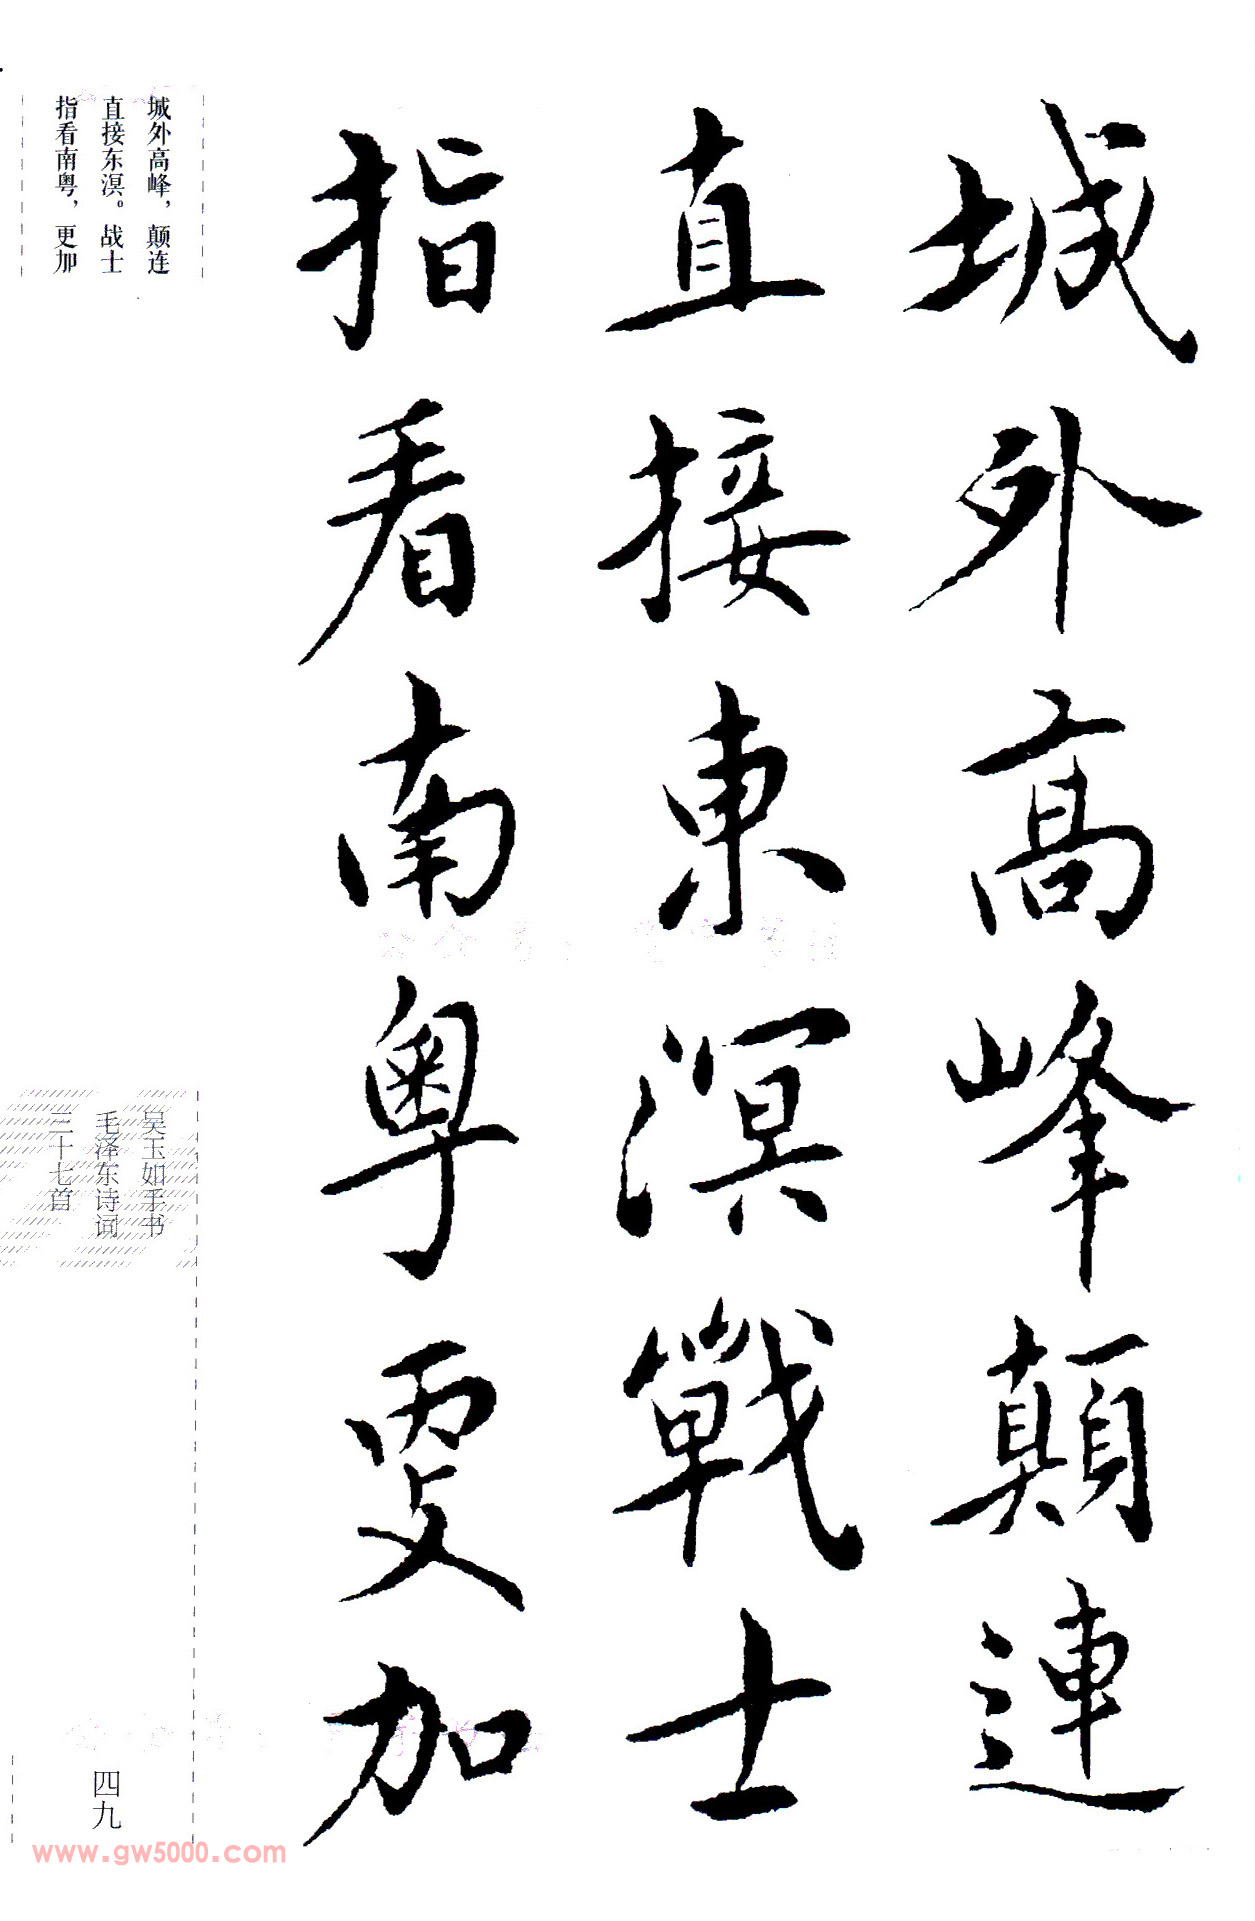 城外高峰顛連
直接東溟戰士
指看南粵更加
城外高峰，颠连
直接东溟。战士
指看南粤，更加
吴玉如手书
毛泽东诗词
三十七首
四九
www.gw5000.com